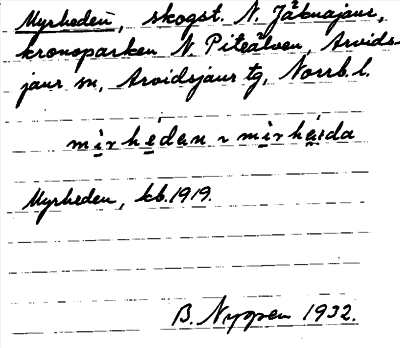 Myrheden, skogst. N. Jäknajaur,
kronoparken N. Piteälven, Arvids-
jaur sn, Arvidsjaur tg, Norrb. l.
mirhedan ~ mirhaida
Myrheden, kb. 1919.
B. Nyppen 1932.